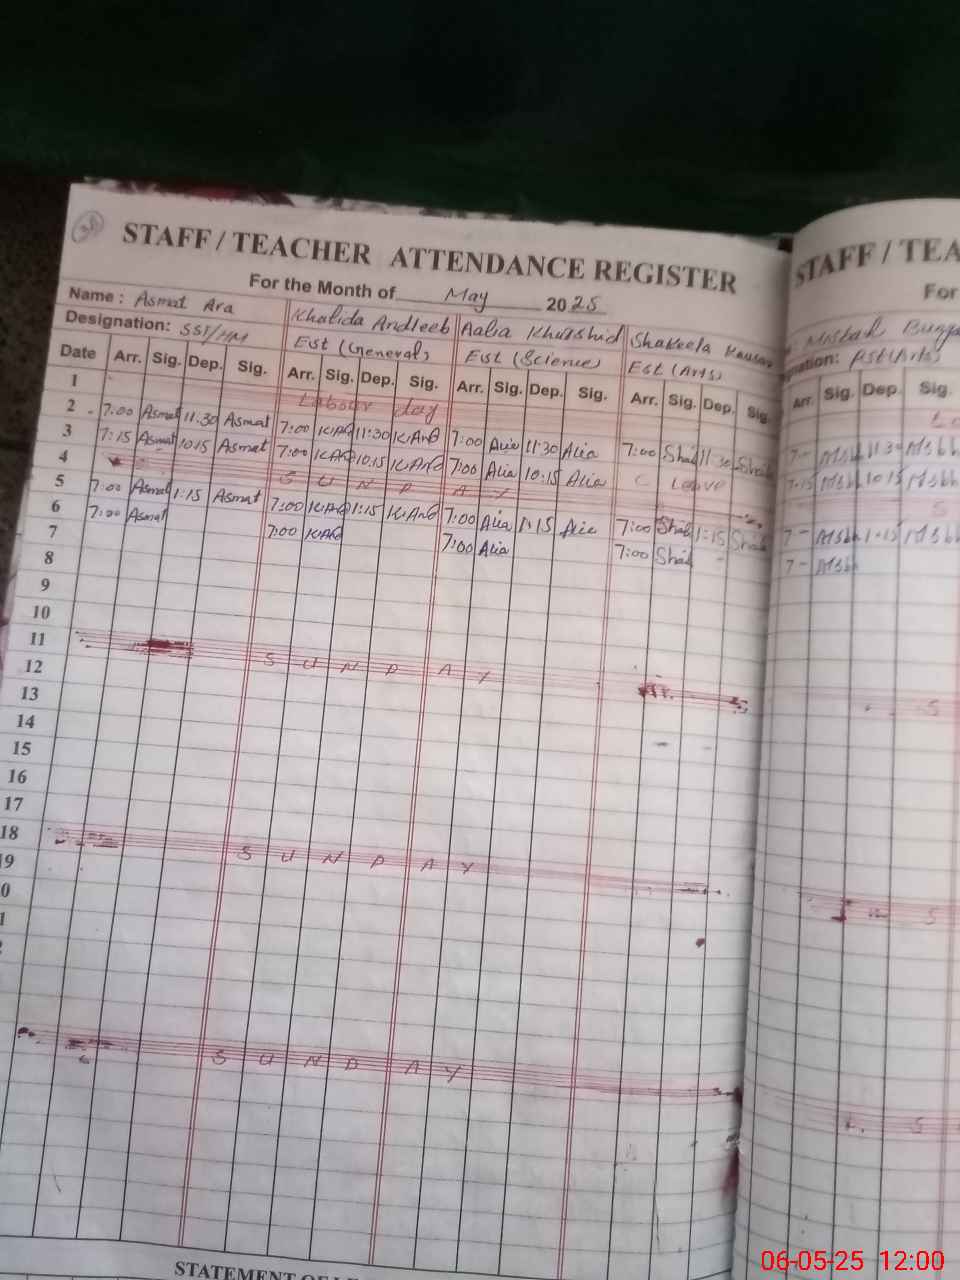 38
STAFF / TEACHER ATTENDANCE REGISTER
STAFF / TEA
For the Month of May 2025
For
Name : Asmat Ara Khalida Andleeb Aalia Khurshid Shakeela Kausar
Designation: SST/HM Est (General) Est (Science) Est (Arts)
nation: PST (Arts)
Date Arr. Sig. Dep. Sig. Arr. Sig. Dep. Sig. Arr. Sig. Dep. Sig. Arr. Sig. Dep. Sig.
Arr. Sig. Dep. Sig.
1 Labour day
2 7:00 Asmat 11:30 Asmat 7:00 11:30 7:00 Alia 11:30 Alia 7:00 Shak 11:30 Shak
7- 11:30
3 7:15 Asmat 10:15 Asmat 7:00 10:15 7:00 Alia 10:15 Alia C Leave
7:15 10:15
4 S U N D A Y
S
5 7:00 Asmat 1:15 Asmat 7:00 1:15 7:00 Alia 1:15 Alia 7:00 Shak 1:15 Shak
7- 1:15
6 7:00 Asmat 7:00 7:00 Alia 7:00 Shak
7-
7
8
9
10
11 S U N D A Y
S
12
13
14
15
16
17
18 S U N D A Y
S
9
0
1
2
S U N D A Y
S
STATEMENT OF LE
06-05-25 12:00